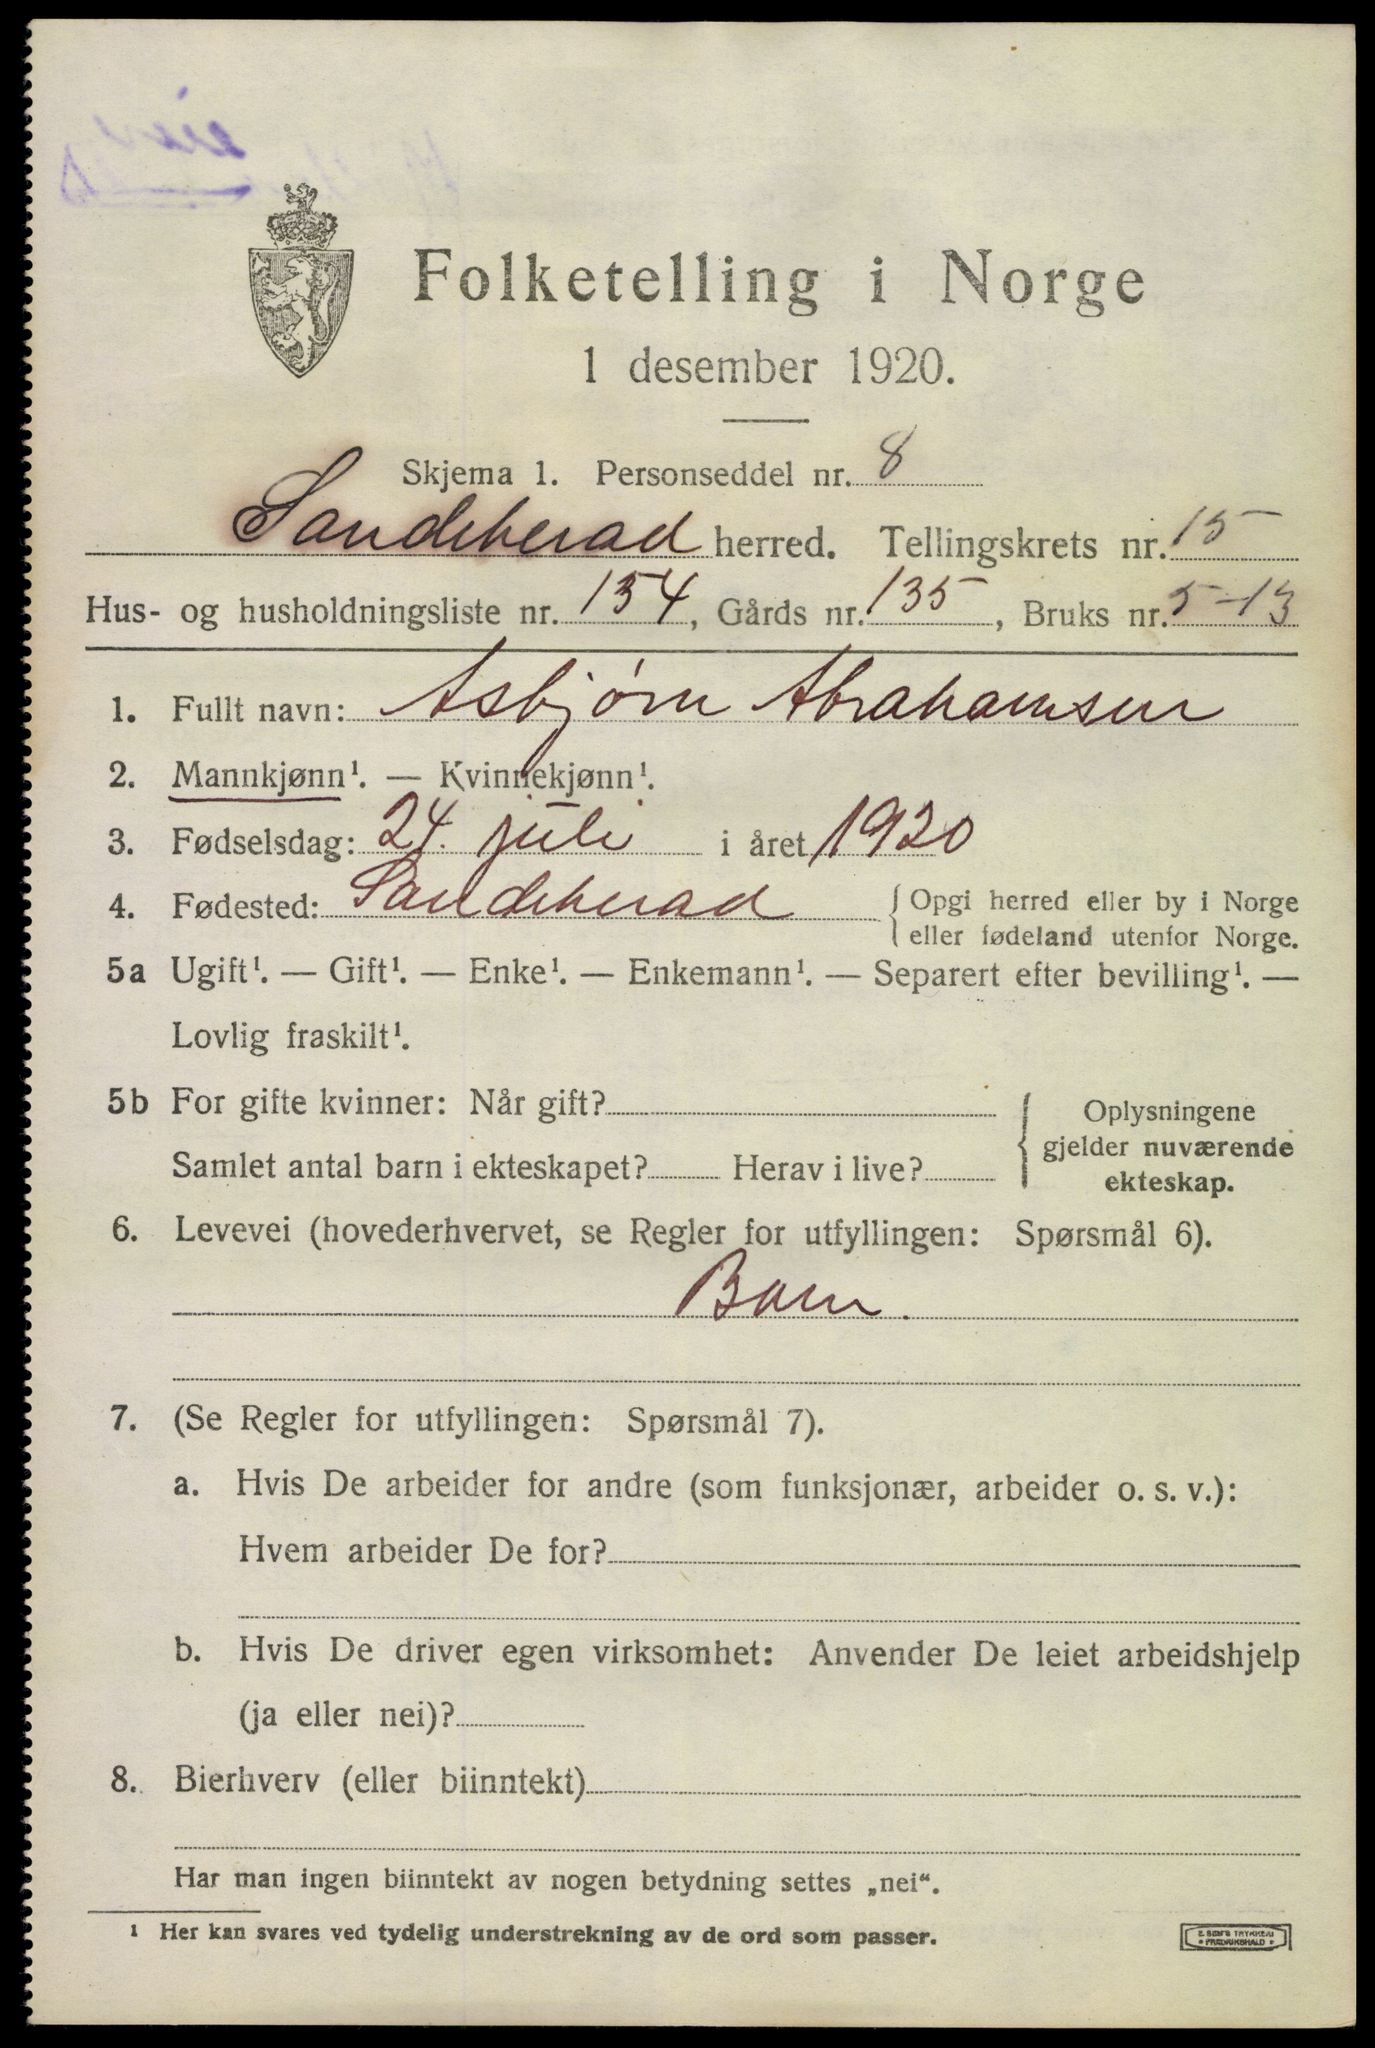 Folketelling i Norge
1 desember 1920.
Skjema 1. Personseddel nr. 8
Sandeherad herred. Tellingskrets nr. 15
Hus- og husholdningsliste nr. 154, Gårds nr. 135, Bruks nr. 5-13
1. Fullt navn: Asbjørn Abrahamsen
2. Mannkjønn¹. — Kvinnekjønn¹.
3. Fødselsdag: 24. juli i året 1920
4. Fødested: Sandeherad { Opgi herred eller by i Norge
eller fødeland utenfor Norge.
5a Ugift¹. — Gift¹. — Enke¹. — Enkemann¹. — Separert efter bevilling¹. —
Lovlig fraskilt¹.
5b For gifte kvinner: Når gift? { Oplysningene
gjelder nuværende
Samlet antal barn i ekteskapet? Herav i live?
ekteskap.
6. Levevei (hovederhvervet, se Regler for utfyllingen: Spørsmål 6).
Barn.
7. (Se Regler for utfyllingen: Spørsmål 7).
a. Hvis De arbeider for andre (som funksjonær, arbeider o. s. v.):
Hvem arbeider De for?
b. Hvis De driver egen virksomhet: Anvender De leiet arbeidshjelp
(ja eller nei)?
8. Bierhverv (eller biinntekt)
Har man ingen biinntekt av nogen betydning settes „nei“.
¹ Her kan svares ved tydelig understrekning av de ord som passer.
FREDRIKSHALD